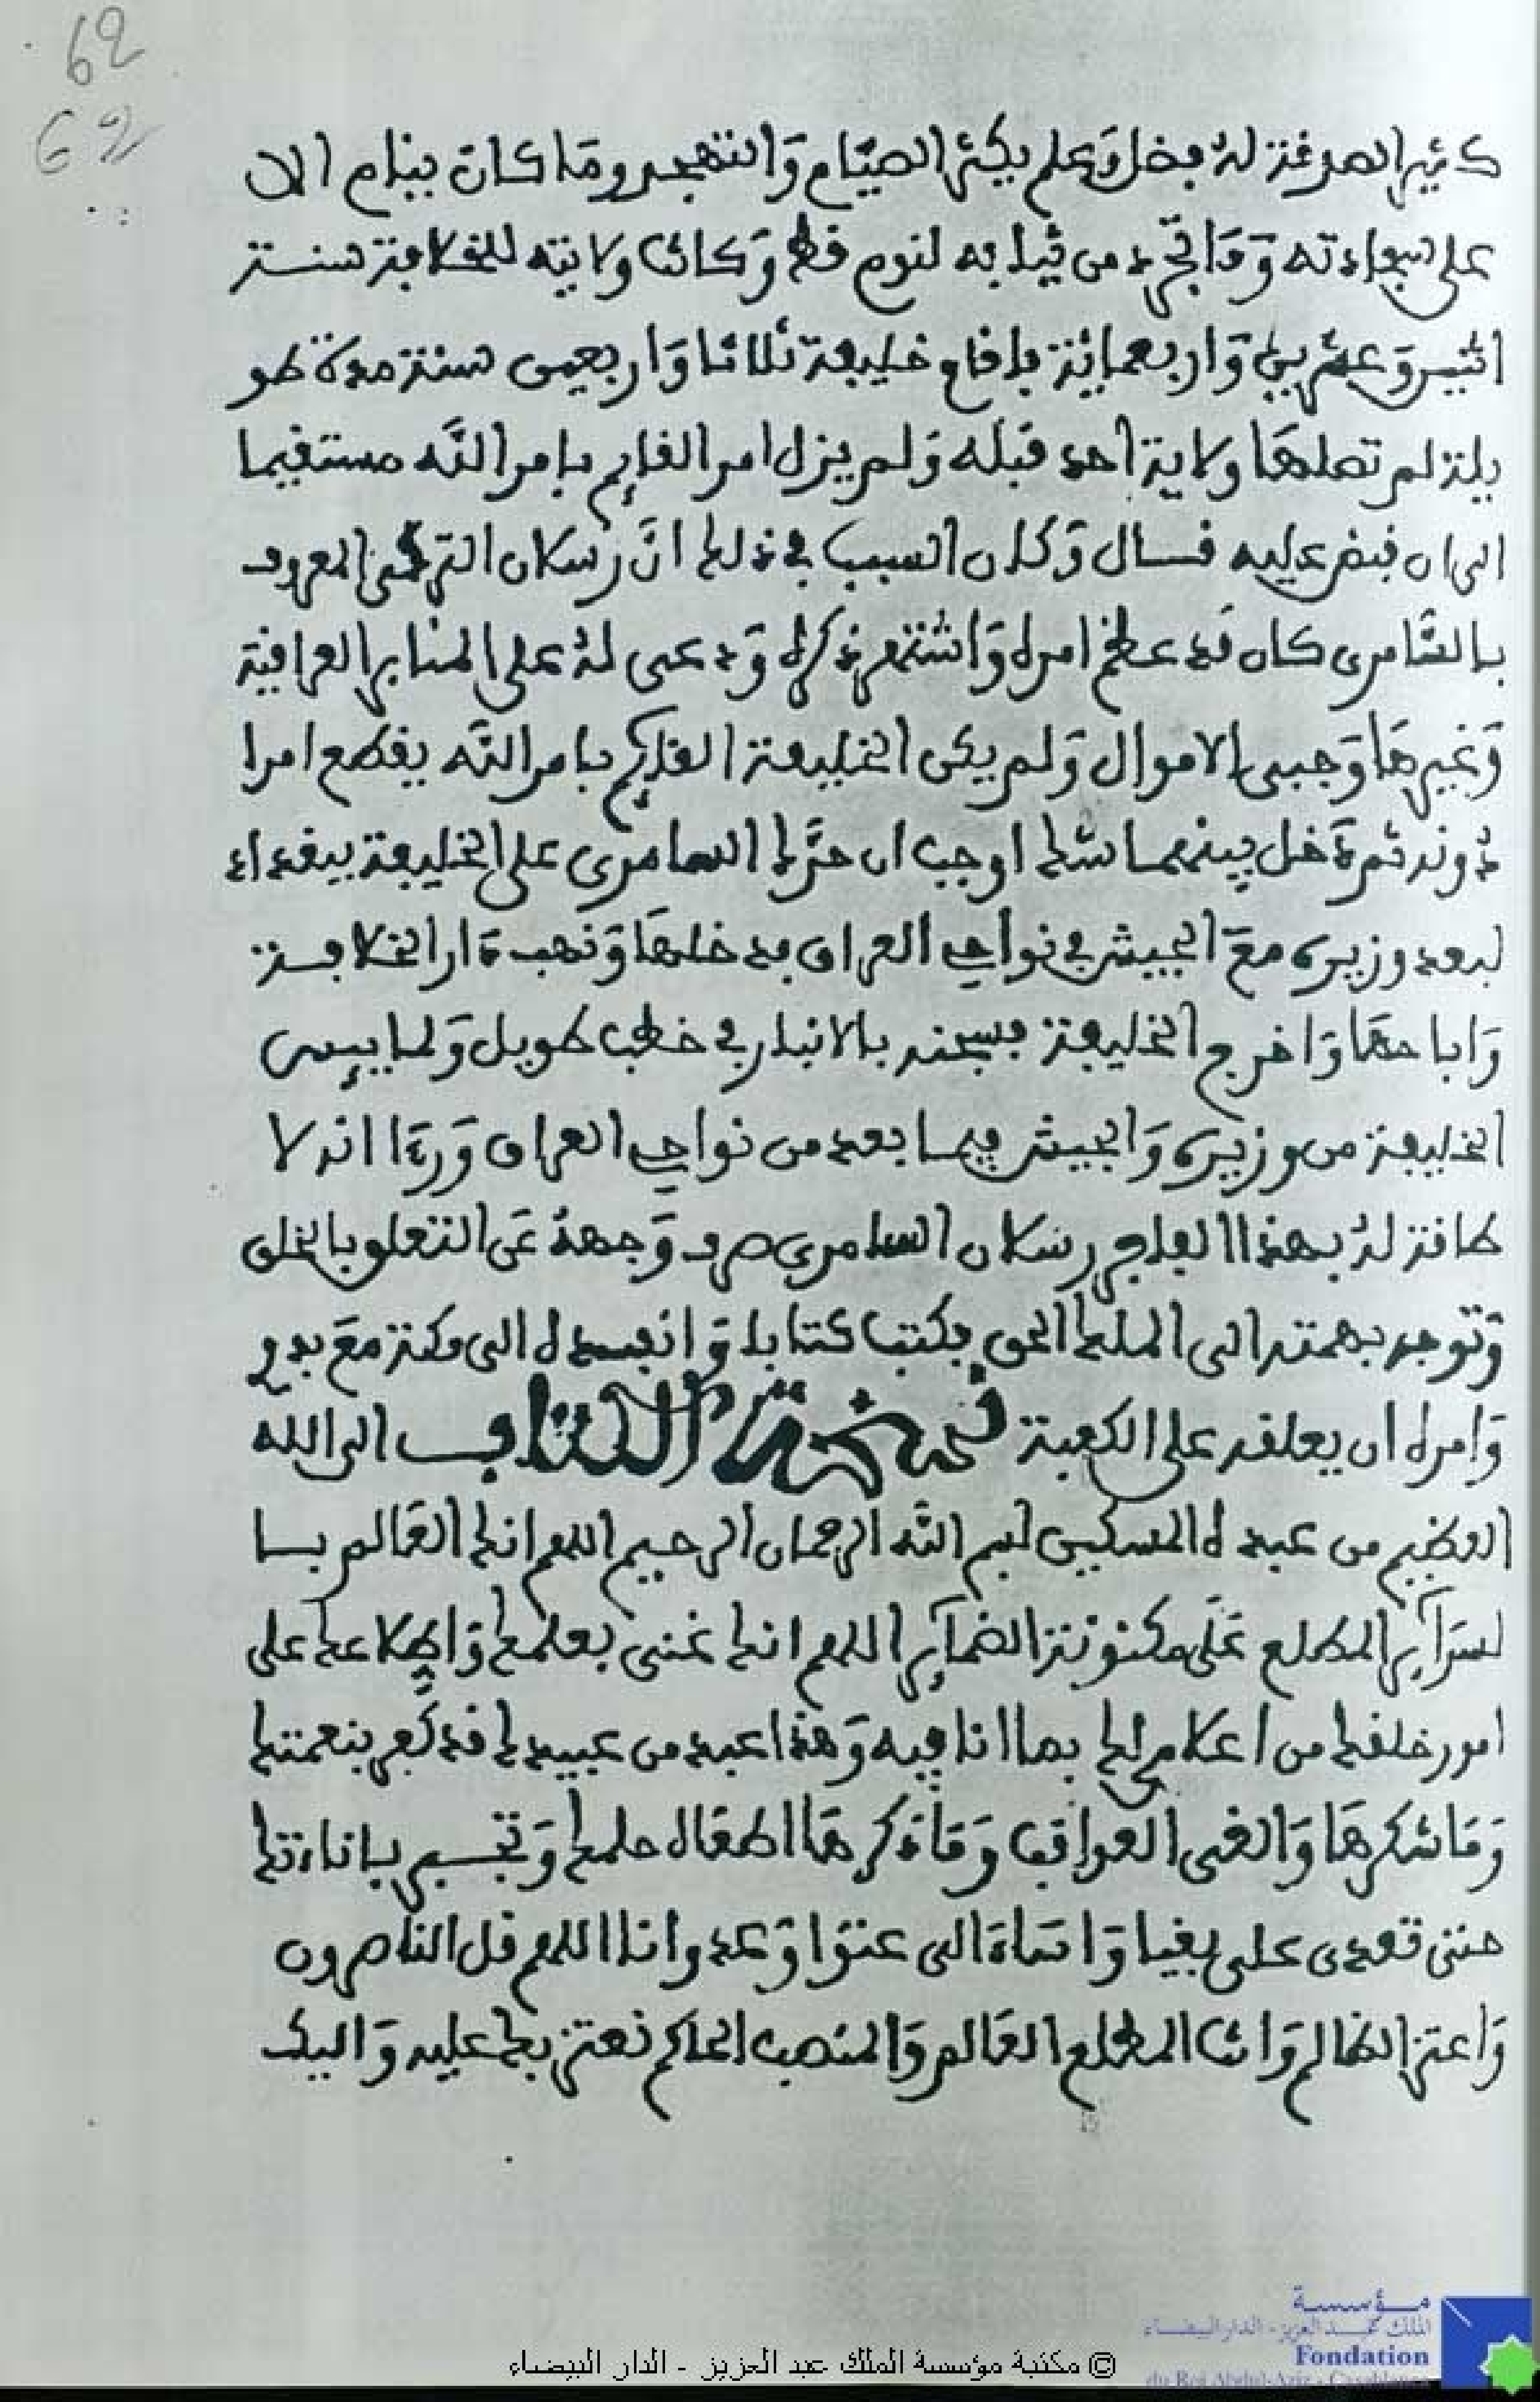 62
62
كثير الصدقة له فضل وعلم يكثر الصيام والتهجد وما كان ينام الا
على سجادته وما تجرد من ثيابه لنوم قط وكانت ولايته للخلافة سنة
اثنين وعشرين واربعمائة فاقام خليفة ثلاثا واربعين سنة مدة طو
يلة لم تصلها ولاية احد قبله ولم يزل امر القايم بامر الله مستقيما
الى ان قبض عليه قسال وكان السبب في ذلك ان رسلان التركي المعروف
بالسامري كان قد عظم امره واشتهر ذكره ودعى له على المنابر العراقية
وغيرها وجبى الاموال ولم يكن الخليفة القايم بامر الله يقطع امرا
دونه ثم دخل بينهما شك اوجب ان حرك السامري على الخليفة ببغداد
لبعد وزيره مع الجيش في نواحي العراق فدخلها ونهب دار الخلافة
واباحها واخرج الخليفة فسجنه بالانبار في خطب طويل ولما ييس
الخليفة من وزيره والجيش فيما بعد من نواحي العراق ورءا انه لا
طاقة له بهذا الفاجر رسلان السامري صرف وجهه عن التعلق بالخلق
وتوجه بهمته الى الملك الحق فكتب كتابا وانفده الى مكة مع بدوي
وامره ان يعلقه على الكعبة نسخة الكتاب الى الله
العظيم من عبده المسكين بسم الله الرحمان الرحيم اللهم انك العالم بسا
لسراير المطلع على مكنونة الضماير اللهم انك غني بعلمك واطلاعك على
امور خلقك من اعلامي لك بما انا فيه وهذا عبد من عبيدك قد كفر بنعمتك
وما شكرها والغى العواقب وما ذكرها اطغاه حلمك وتجسر باناءتك
حتى تعدى على بغيا واساء الى عتوا وعدوانا اللهم قل الناصرون
واعتز الظالم وانت المطلع العالم والمنصب الحاكم نعتز بك عليه واليك
مؤسسة
الملك عبد العزيز - الدار البيضاء
Fondation
du Roi Abdul-Aziz - Casablanca
© مكتبة مؤسسة الملك عبد العزيز - الدار البيضاء